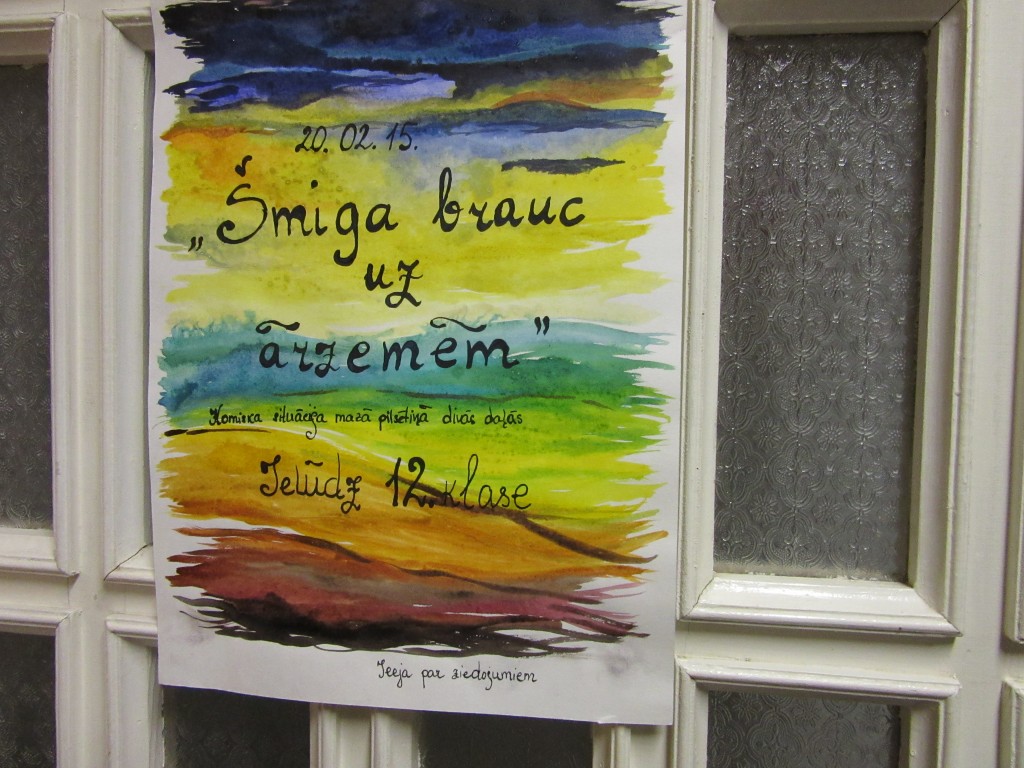 20. 02. 15.
„Šmiga brauc
uz
ārzemēm"
Komiska situācija mazā pilsētiņā divās daļās
Ielūdz 12. klase
Ieeja par ziedojumiem